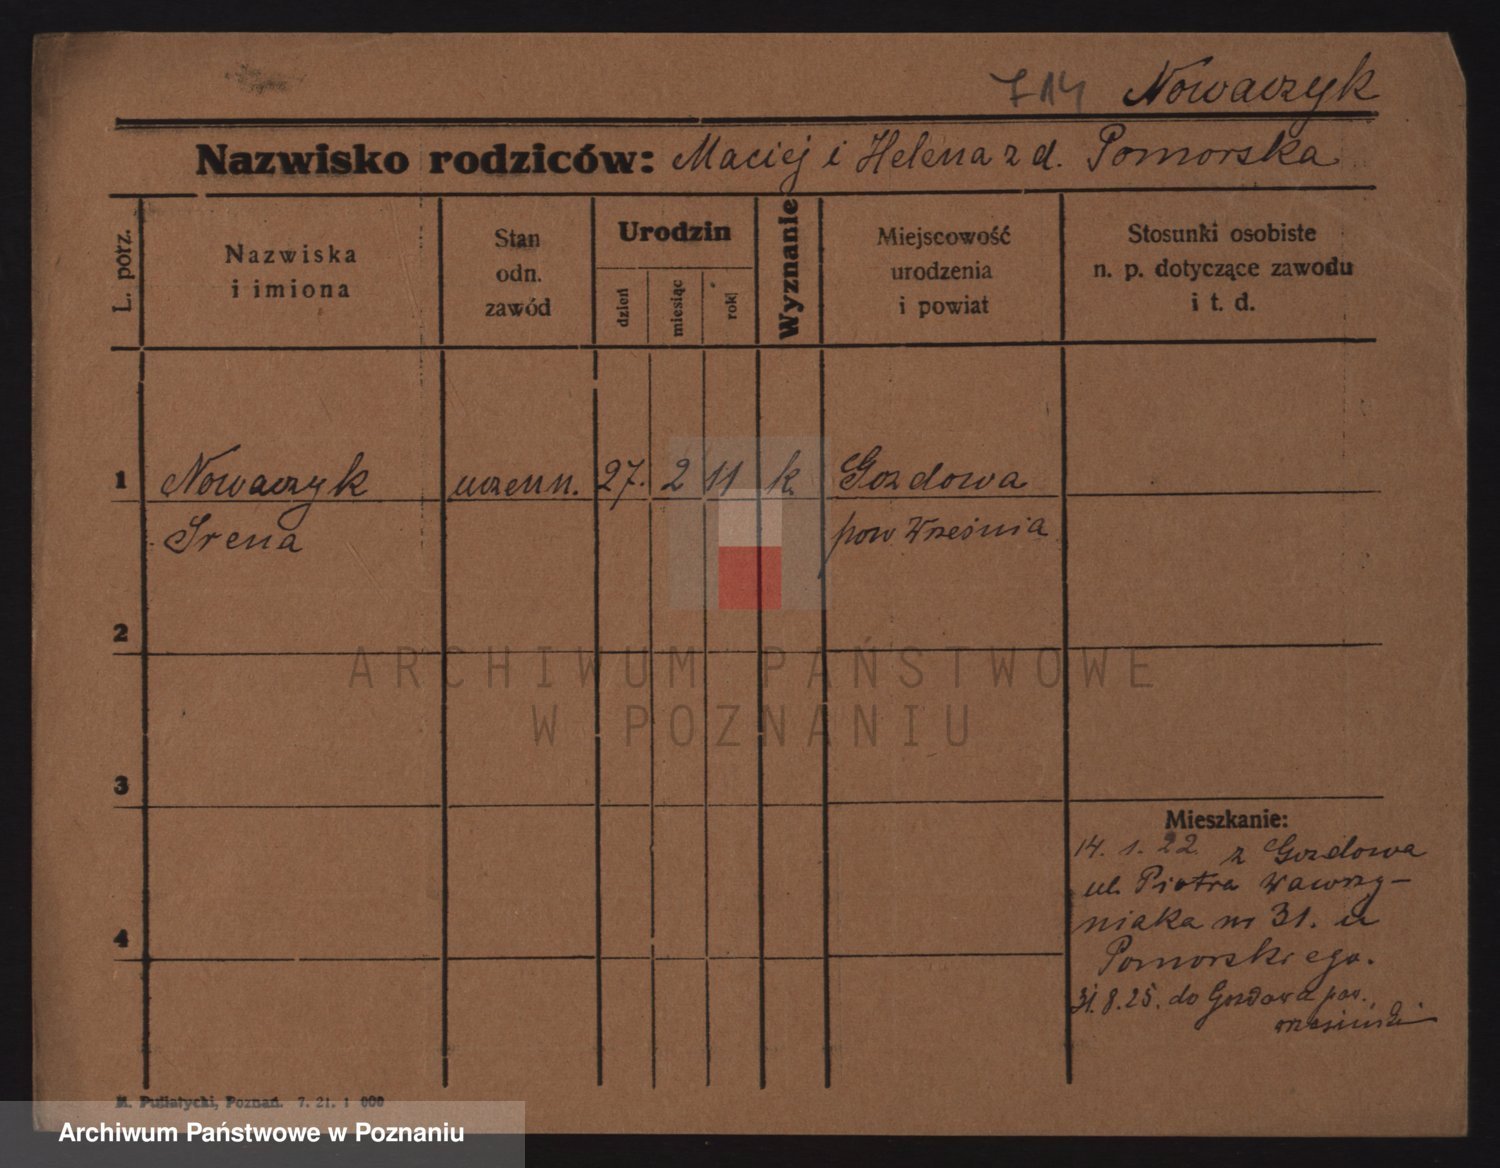 714 Nowaczyk
Nazwisko rodziców: Maciej i Helena z d. Pomorska
L. porz.
Nazwiska
i imiona
Stan
odn.
zawód
Urodzin
dzień
miesiąc
rok
Wyznanie
Miejscowość
urodzenia
i powiat
Stosunki osobiste
n. p. dotyczące zawodu
i t. d.
1 Nowaczyk uczenn. 27. 2 11 k. Gozdowa
Irena pow. Września
2
ARCHIWUM PAŃSTWOWE
W POZNANIU
3
Mieszkanie:
14. 1. 22 z Gozdowa
ul. Piotra Wawrzy-
niaka nr 31. u
4
Pomorskiego.
31. 8. 25. do Gozdowa pow.
wrzesiński
M. Putiatycki, Poznań. 7. 21. 1 000
Archiwum Państwowe w Poznaniu